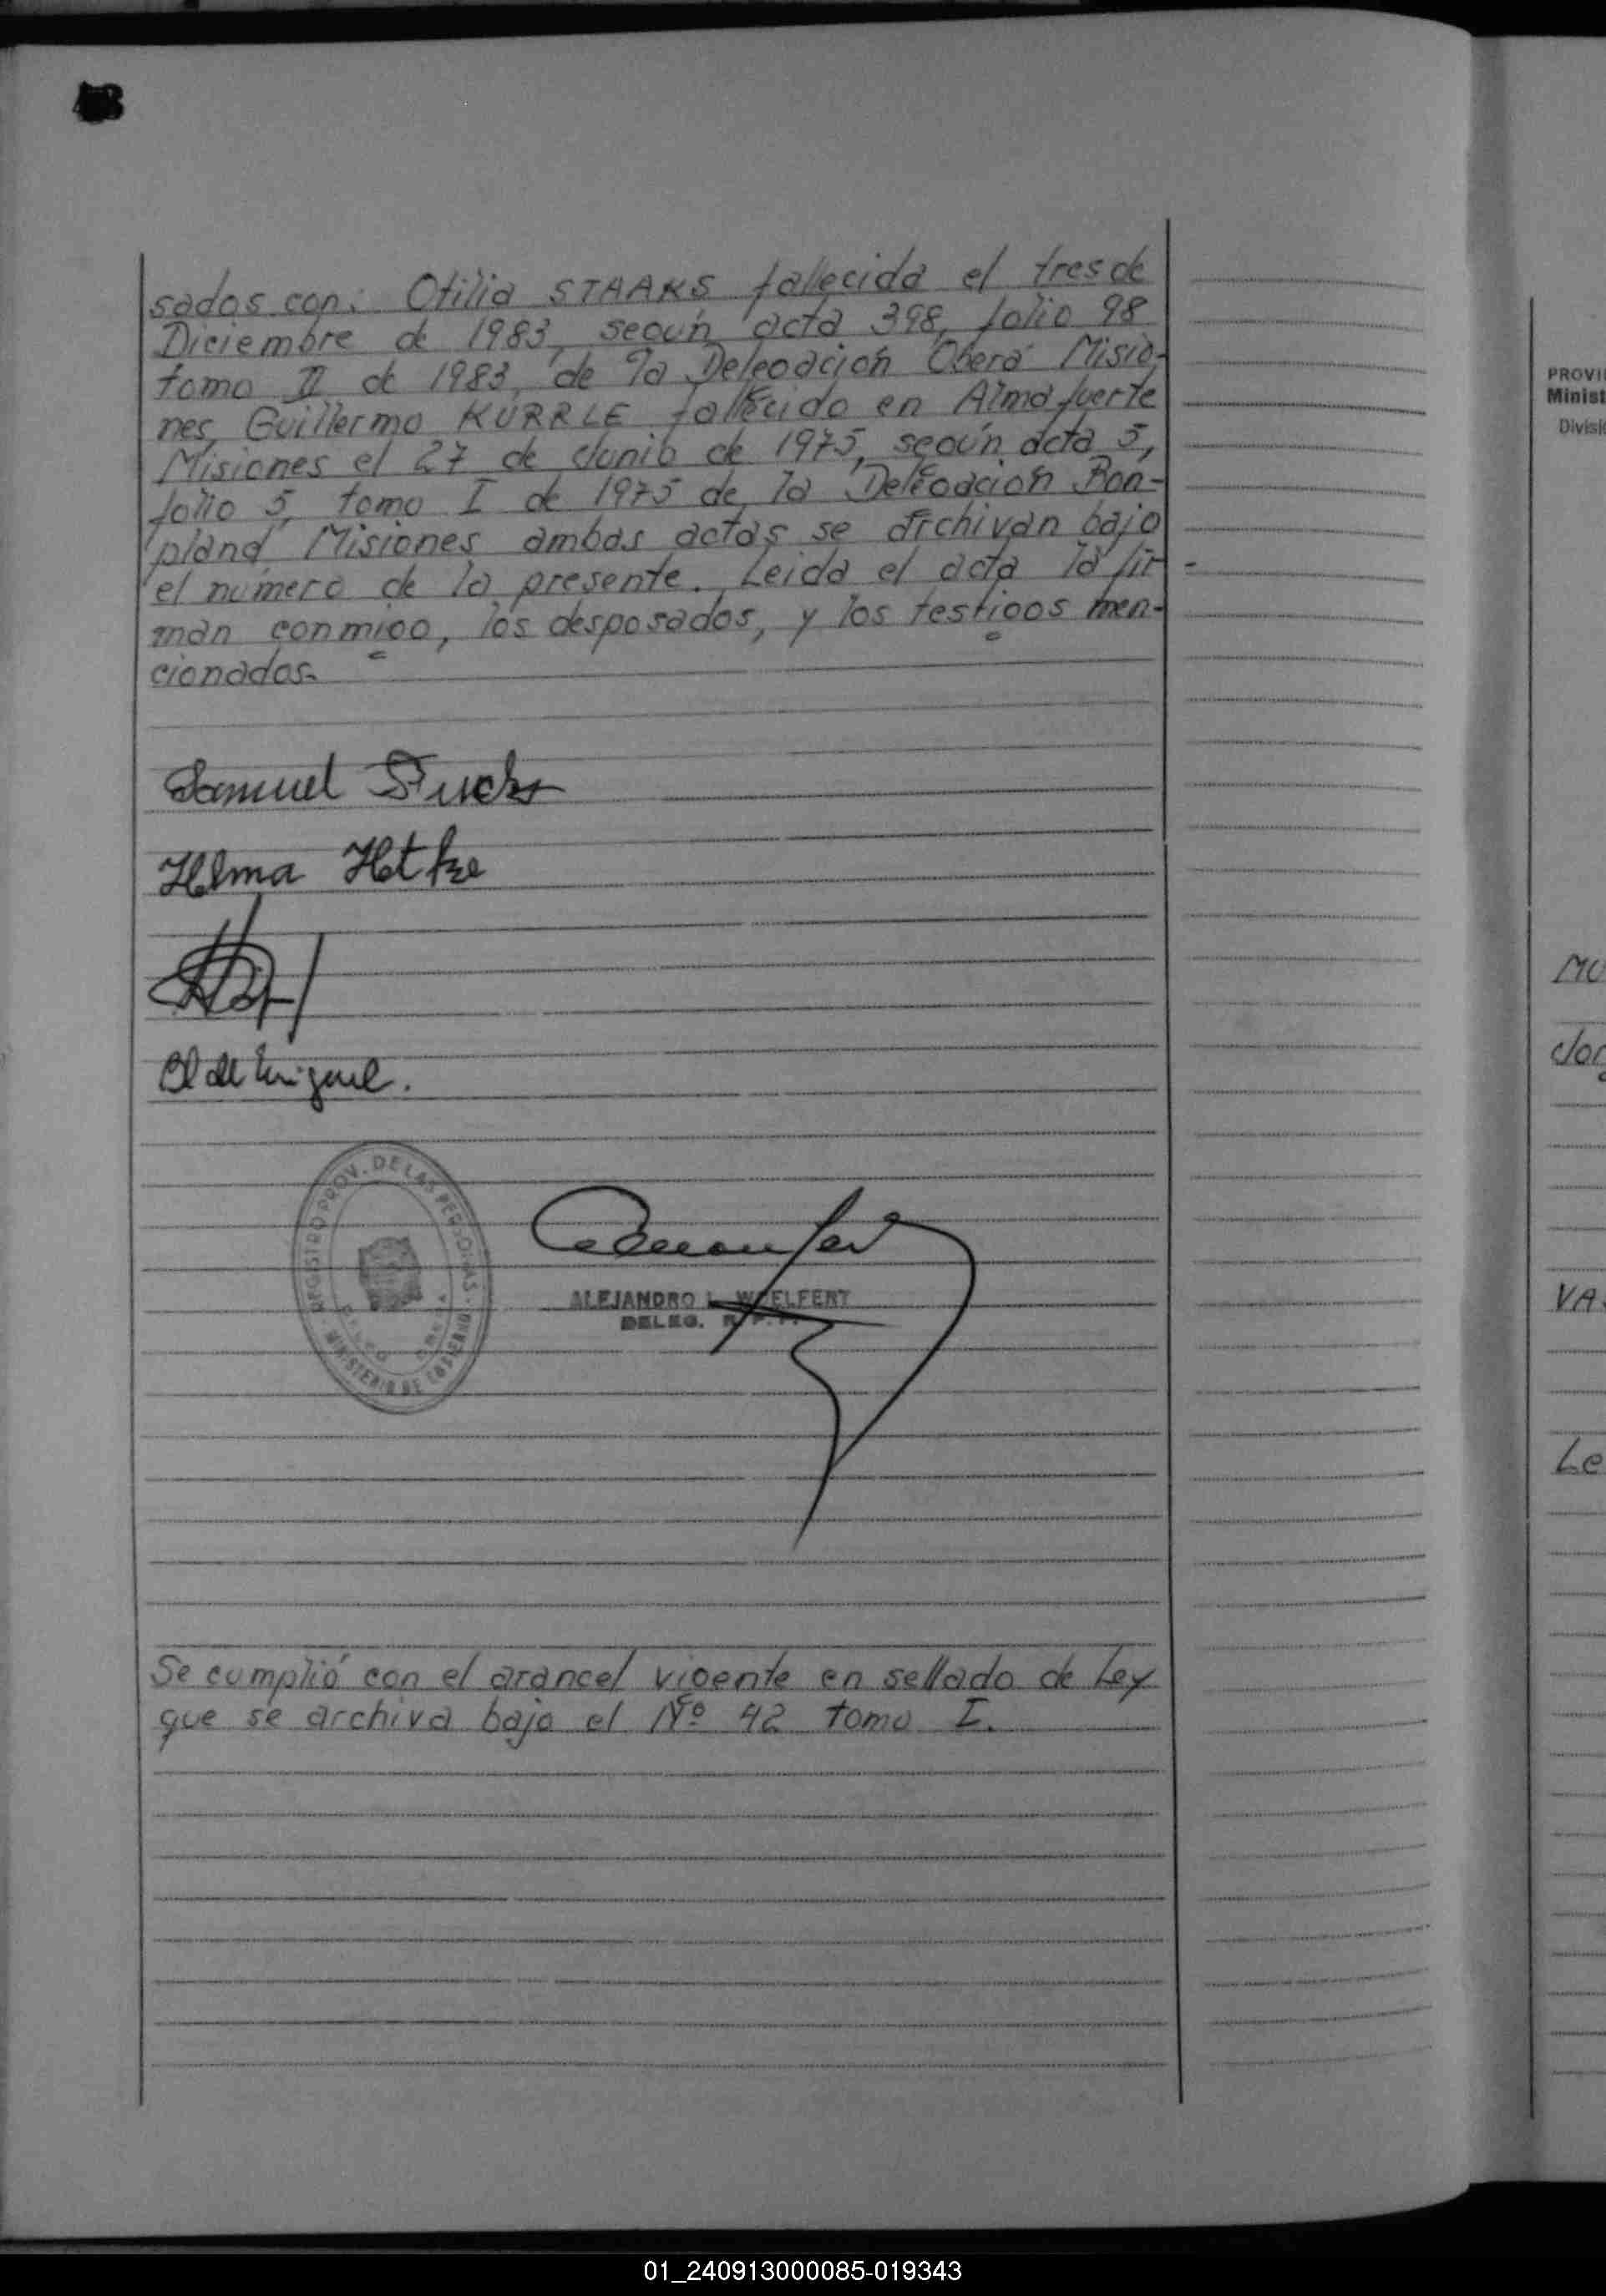 sados con: Otilia STAAKS fallecida el tres de
Diciembre de 1983, según acta 398, folio 98
tomo II de 1983, de la Delegación Oberá Misio-
nes, Guillermo KURRLE fallecido en Almafuerte
Misiones el 27 de Junio de 1975, según acta 5,
folio 5, tomo I de 1975 de la Delegación Bon-
pland Misiones ambas actas se archivan bajo
el numero de la presente. Leida el acta la fir-
man conmigo, los desposados, y los testigos men-
cionados.
Samuel Fuchs
Helma Hetke
REGISTRO PROV. DE LAS PERSONAS
MINISTERIO DE GOBIERNO
ALEJANDRO L. WOELFERT
DELEG. R. P. P.
Se cumplió con el arancel vigente en sellado de Ley
que se archiva bajo el Nº 42 tomo I.
PROVI
Minist
Divisi
MU
Jor
VA
Le
01_240913000085-019343